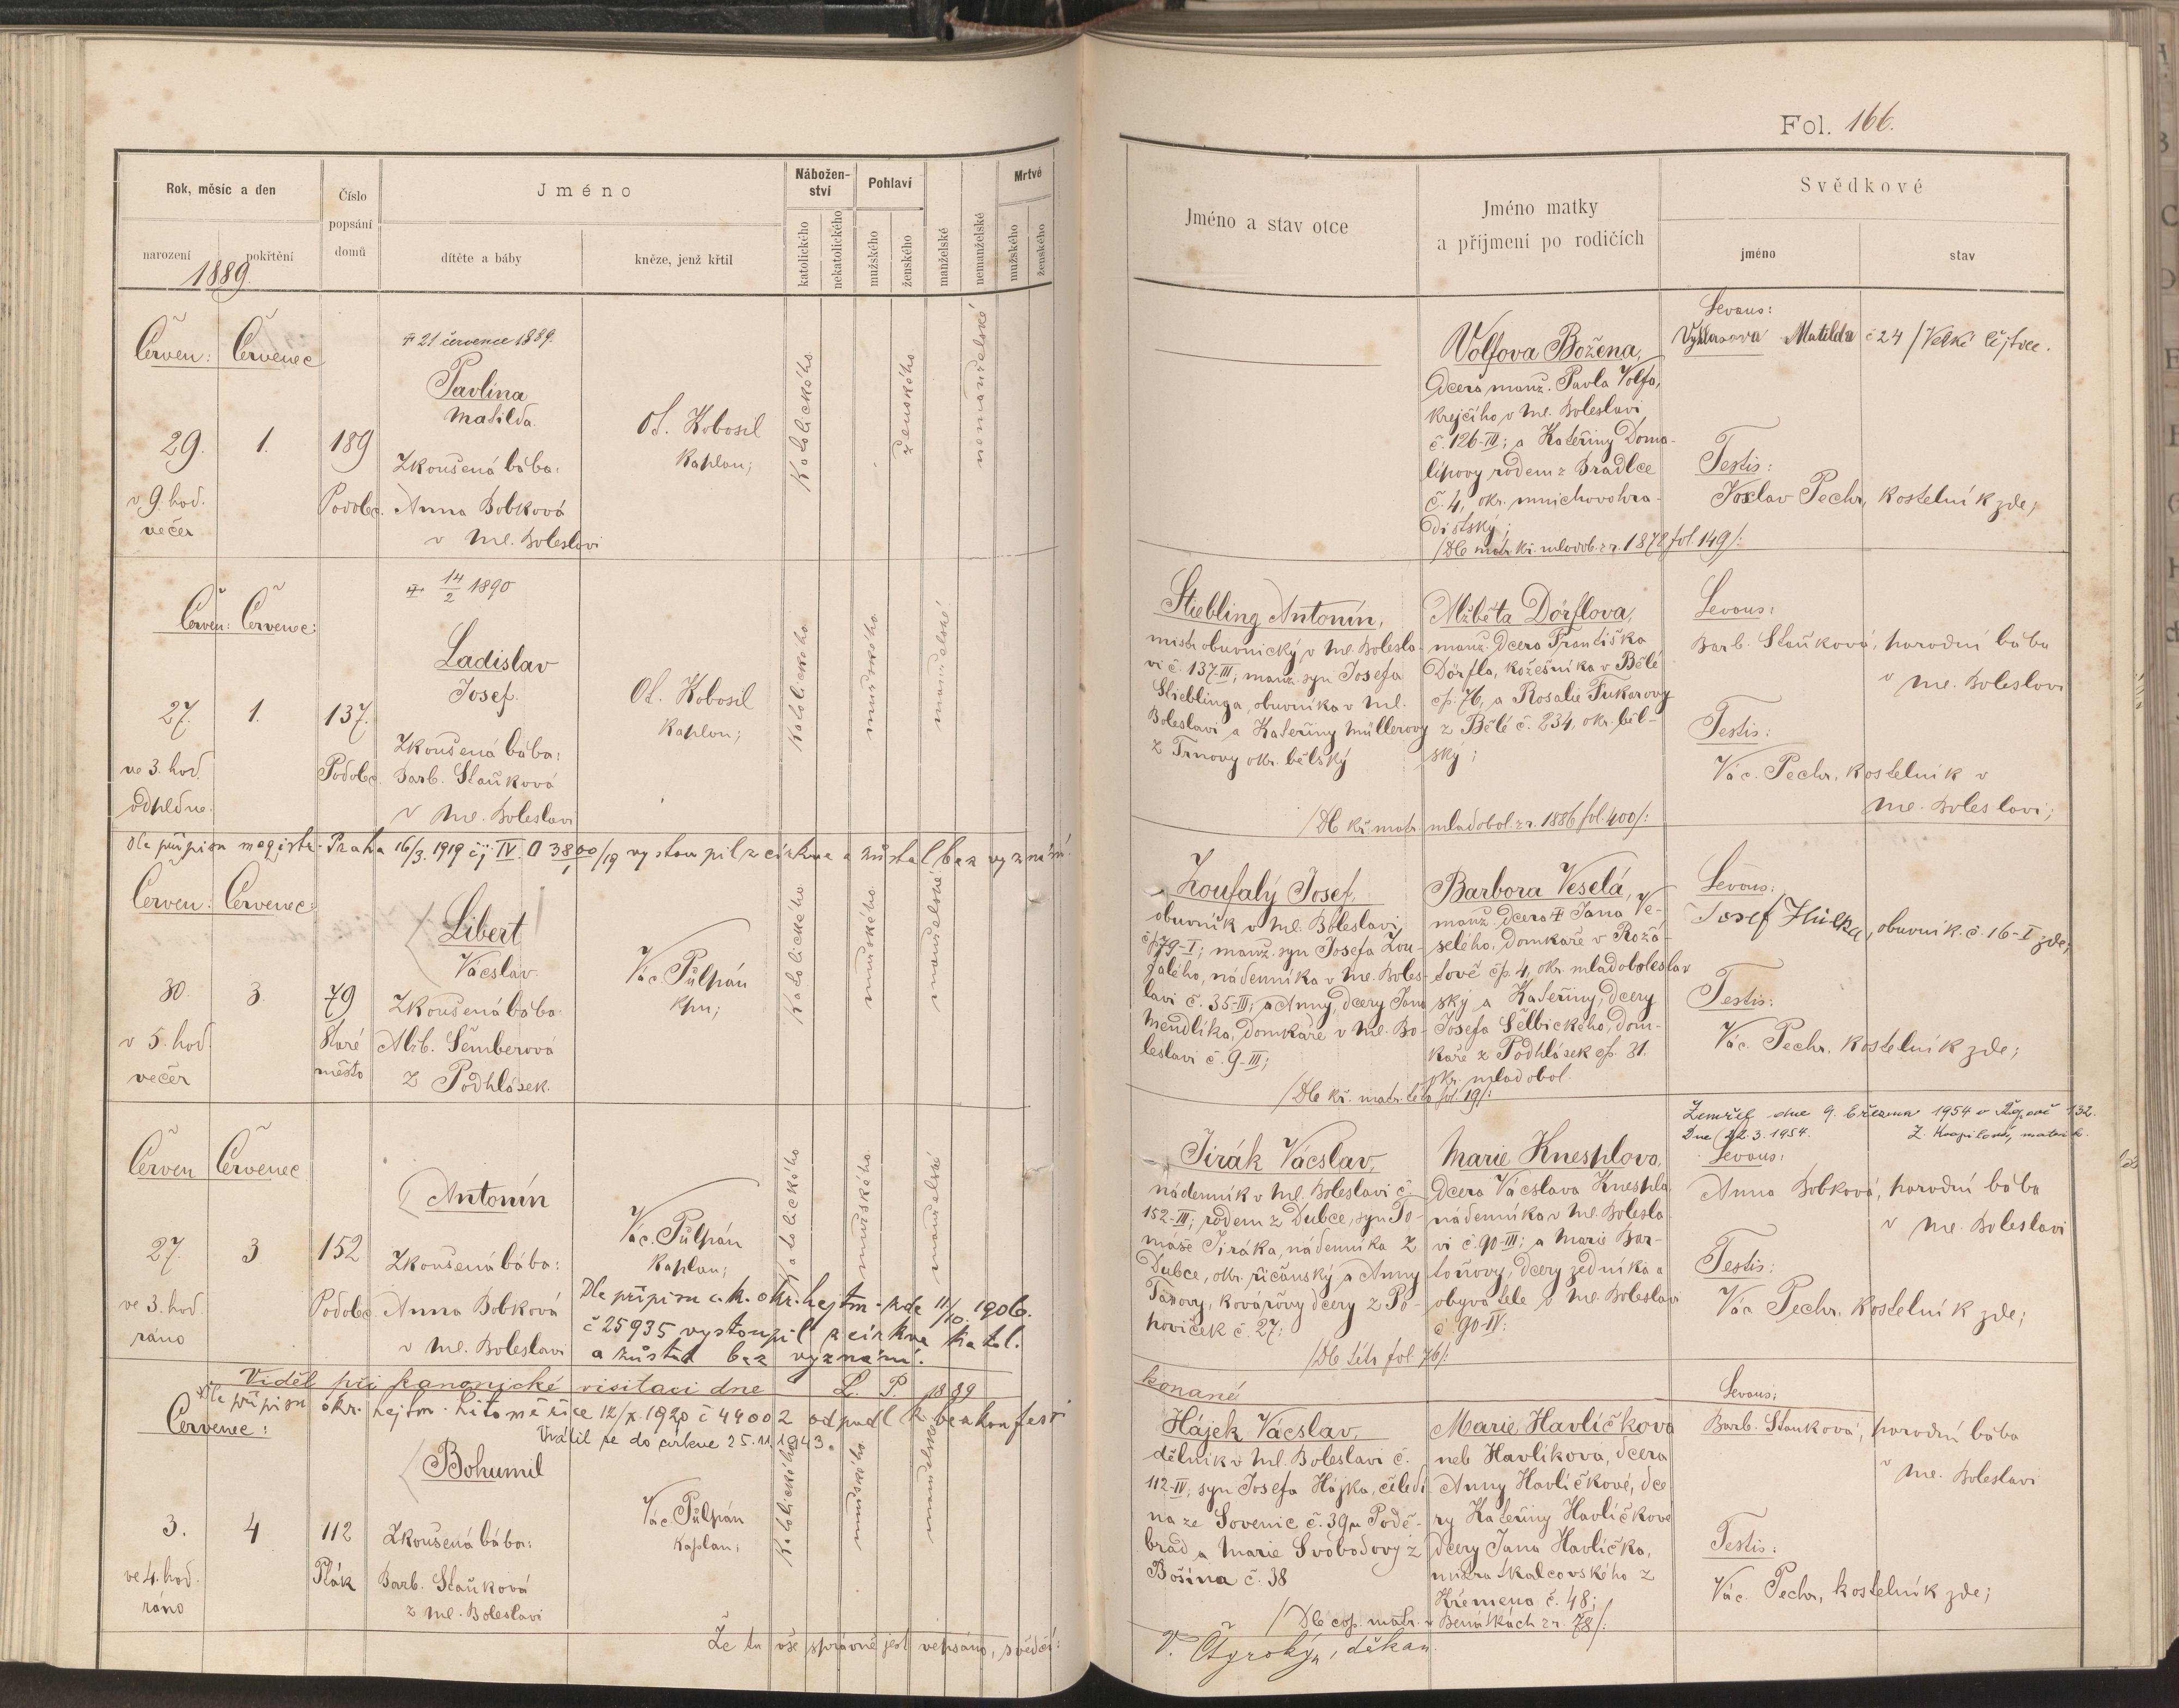 Fol. 166.
Rok, měsíc a den
narození
pokřtění
1889.
Číslo
popsání
domů
Jméno
dítěte a báby
kněze, jenž křtil
Nábožen-
ství
katolického
nekatolického
Pohlaví
mužského
ženského
manželské
nemanželské
Mrtvé
mužského
ženského
Jméno a stav otce
Jméno matky
a příjmení po rodičích
Svědkové
jméno
stav
Červen: Červenec
29. 1. 189
v 9. hod.
večer
Podolec.
21 července 1889.
Pavlína
Matilda.
Zkoušená bába:
Anna Bobková
v Ml. Boleslavi
Ot. Kobosil
Kaplan;
Katolického
ženského
nemanželské
Volfova Božena,
dcera manž. Pavla Volfa,
krejčího v Ml. Boleslavi
č. 126-III; a Kateřiny Doma-
lípovy rodem z Bradlce
č. 4, okr. mnichovohra-
dištský;
/Dle matr. kř. mladob. z r. 1872 fol. 149/:
Levans:
Matilda č 24 / Velké
Testis:
Václav Pechr, kostelník zde;
Červen: Červenec:
27. 1. 137.
ve 3. hod.
odpledne.
Podolec.
14/2 1890
Ladislav
Josef.
Zkoušená bába:
Barb. Staňková
v Ml. Boleslavi
Ot. Kobosil
Kaplan;
Katolického
mužského
manželské
Stiebling Antonín,
mistr obuvnický v Ml. Bolesla-
vi č. 137-III; manž. syn Josefa
Stieblinga, obuvníka v Ml.
Boleslavi a Kateřiny Müllerovy
z Trnovy okr. bělský
Alžběta Dörflova,
manž. dcera Františka
Dörfla, kožešníka v Bělé
čp. 76, a Rosalie Fukarovy
z Bělé č. 234, okr. běl-
ský;
/Dle kř. matr. mladobol. z r. 1886 fol. 400/:
Levans:
Barb. Staňková, porodní bába
v Ml. Boleslavi
Testis:
Vác. Pechr, kostelník v
Ml. Boleslavi;
Dle přípisu magistr. Praha 16/3. 1919 čj. IV. 3800/19 vystoupil z církve a zůstal bez vyznání.
Červen: Červenec:
30. 3. 79
v 5. hod.
večer
Staré
město
Libert
Václav.
Zkoušená bába:
Alžb. Šemberová
z Podhlásek.
Vác. Půlpán
kpn;
Katolického
mužského
manželské
Zoufalý Josef,
obuvník v Ml. Boleslavi
čp. 79-I; manž. syn Josefa Zou-
falého, nádenníka v Ml. Boles-
lavi č. 35-III; a Anny, dcery Jana
Mendlíka, domkáře v Ml. Bo-
leslavi č. 9-III;
Barbora Veselá,
manž. dcera Jana Ve-
selého, domkáře v Rožá-
tově čp. 4, okr. mladoboleslav
ský a Kateřiny, dcery
Josefa Šelbického, dom-
káře z Podhlásek čp. 31.
okr. mladobol.
/Dle kř. matr. této fol. 19/:
Levans:
Josef Hůlka, obuvník č. 16-I zde;
Testis:
Vác. Pechr, kostelník zde;
Červen Červenec
27. 3 152
ve 3. hod
ráno
Podolec.
Antonín
Zkoušená bába:
Anna Bobková
v Ml. Boleslavi
Vác. Půlpán
Kaplan;
Katolického
mužského
manželské
Dle přípisu c. k. okr. hejtm. zde 11/10. 1906.
č 25935 vystoupil z církve katol.
a zůstal bez vyznání.
Jirák Václav,
nádenník v Ml. Boleslavi č.
152-III; rodem z Dubce, syn To-
máše Jiráka, nádenníka z
Dubce, okr. říčanský a Anny
kovářovy dcery z Po-
č. 27:
Marie Knesplova,
dcera Václava Knespla
nádenníka v Ml. Bolesla-
vi č. 90-III; a Marie Bar-
toňovy, dcery zedníka a
obyvatele v Ml. Boleslavi
č. 90-IV:
/Dle této fol. 76/:
Zemřel dne 9. března 1954 v Řepově 132.
Dne 22.3.1954.
matrik.
Levans:
Anna Bobková, porodní bába
v Ml. Boleslavi
Testis:
Vác. Pechr, kostelník zde;
Viděl při kanonické visitaci dne L. P. 1889 konané
Dle přípisu okr. hejtm. Litoměřice 12/X. 1920 č 44002 odpadl k bezkonfesi
Vrátil se do církve 25.11.1943.
Červenec:
3. 4 112
ve 4. hod.
ráno
Pták
Bohumil
Zkoušená bába:
Barb. Staňková
z Ml. Boleslavi
Vác. Půlpán
Kaplan;
Katolického
mužského
manželské
Hájek Václav,
dělník v Ml. Boleslavi č.
112-IV; syn Josefa Hájka, čeledí
na ze Sovenic č. 39 u Podě-
brad a Marie Svobodovy z
Bošína č. 38
Marie Havlíčkova
neb Havlíkova, dcera
Anny Havlíčkové, dce
ry Kateřiny Havlíčkové
dcery Jana Havlíčka,
mistra tkalcovského z
Křemena č. 48;
/Dle cop. matr. v Benátkách z r. 78/:
Levans:
Barb. Staňková, porodní bába
v Ml. Boleslavi
Testis:
Vác. Pechr, kostelník zde;
Že tu vše správně jest vepsáno, svědčí:
děkan.